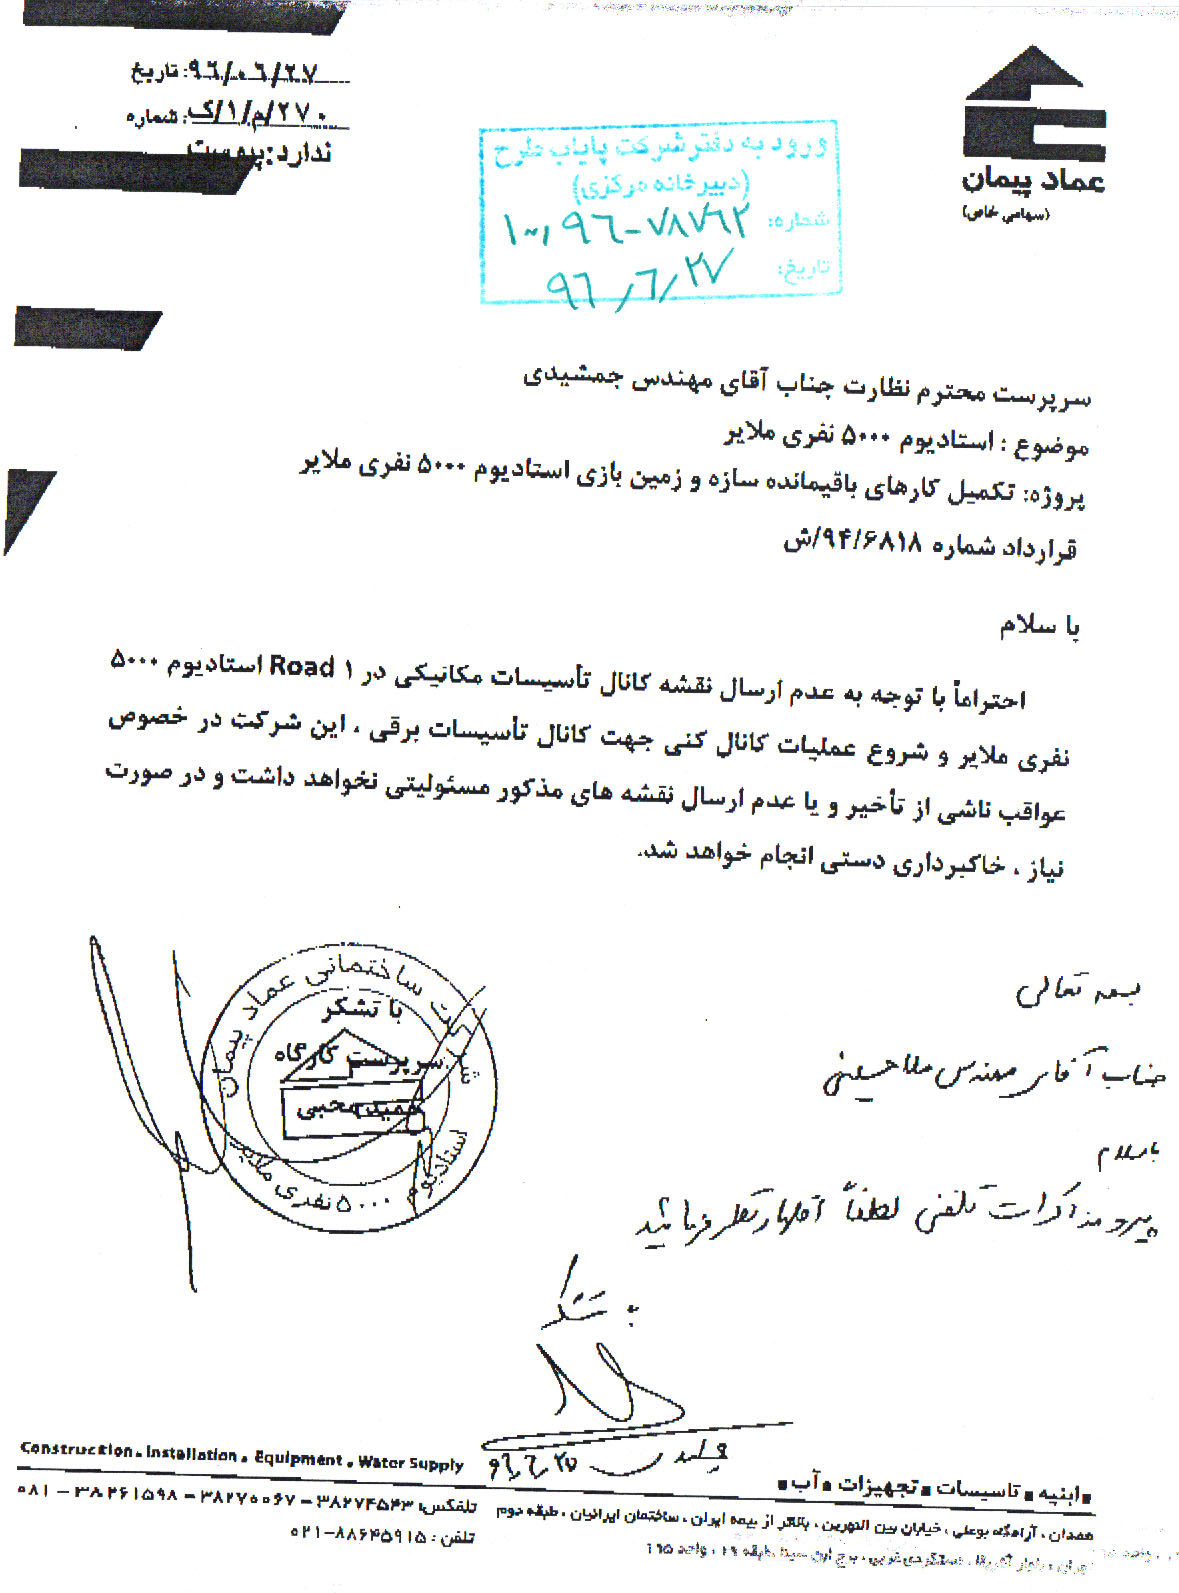 تاریخ: ۹۶/۰۶/۲۷
شماره: ۲۷۰/م/۱/ک
پیوست: ندارد
عماد پیمان
(سهامی خاص)
ورود به دفتر شرکت پایاب طرح
(دبیرخانه مرکزی)
شماره: ۷۸۷۶۲-۹۶
تاریخ: ۹۶/۶/۲۷
سرپرست محترم نظارت جناب آقای مهندس جمشیدی
موضوع : استادیوم ۵۰۰۰ نفری ملایر
پروژه: تکمیل کارهای باقیمانده سازه و زمین بازی استادیوم ۵۰۰۰ نفری ملایر
قرارداد شماره ۹۴/۶۸۱۸/ش
با سلام
احتراماً با توجه به عدم ارسال نقشه کانال تأسیسات مکانیکی در Road ۱ استادیوم ۵۰۰۰
نفری ملایر و شروع عملیات کانال کنی جهت کانال تأسیسات برقی ، این شرکت در خصوص
عواقب ناشی از تأخیر و یا عدم ارسال نقشه های مذکور مسئولیتی نخواهد داشت و در صورت
نیاز ، خاکبرداری دستی انجام خواهد شد.
شرکت ساختمانی عماد پیمان
با تشکر
سرپرست کارگاه
حمید محبی
استادیوم ۵۰۰۰ نفری ملایر
بسمه تعالی
جناب آقای مهندس ملاحسینی
باسلام
پیرو مذاکرات تلفنی لطفاً اظهار نظر فرمائید
Construction . Installation . Equipment . Water Supply
ابنیه . تاسیسات . تجهیزات . آب
تلفکس: ۳۸۲۷۴۵۴۳ – ۳۸۲۷۰۰۶۷ – ۳۸۲۶۱۵۹۸ – ۰۸۱
همدان ، آرامگاه بوعلی ، خیابان بین النهرین ، بالاتر از بیمه ایران ، ساختمان ایرانیان ، طبقه دوم
تلفن : ۸۸۶۴۵۹۱۵-۰۲۱
تهران ، بلوار آفریقا ، دستگردی غربی ، برج ابن سینا ، طبقه ۱۹ ، واحد ۱۹۵